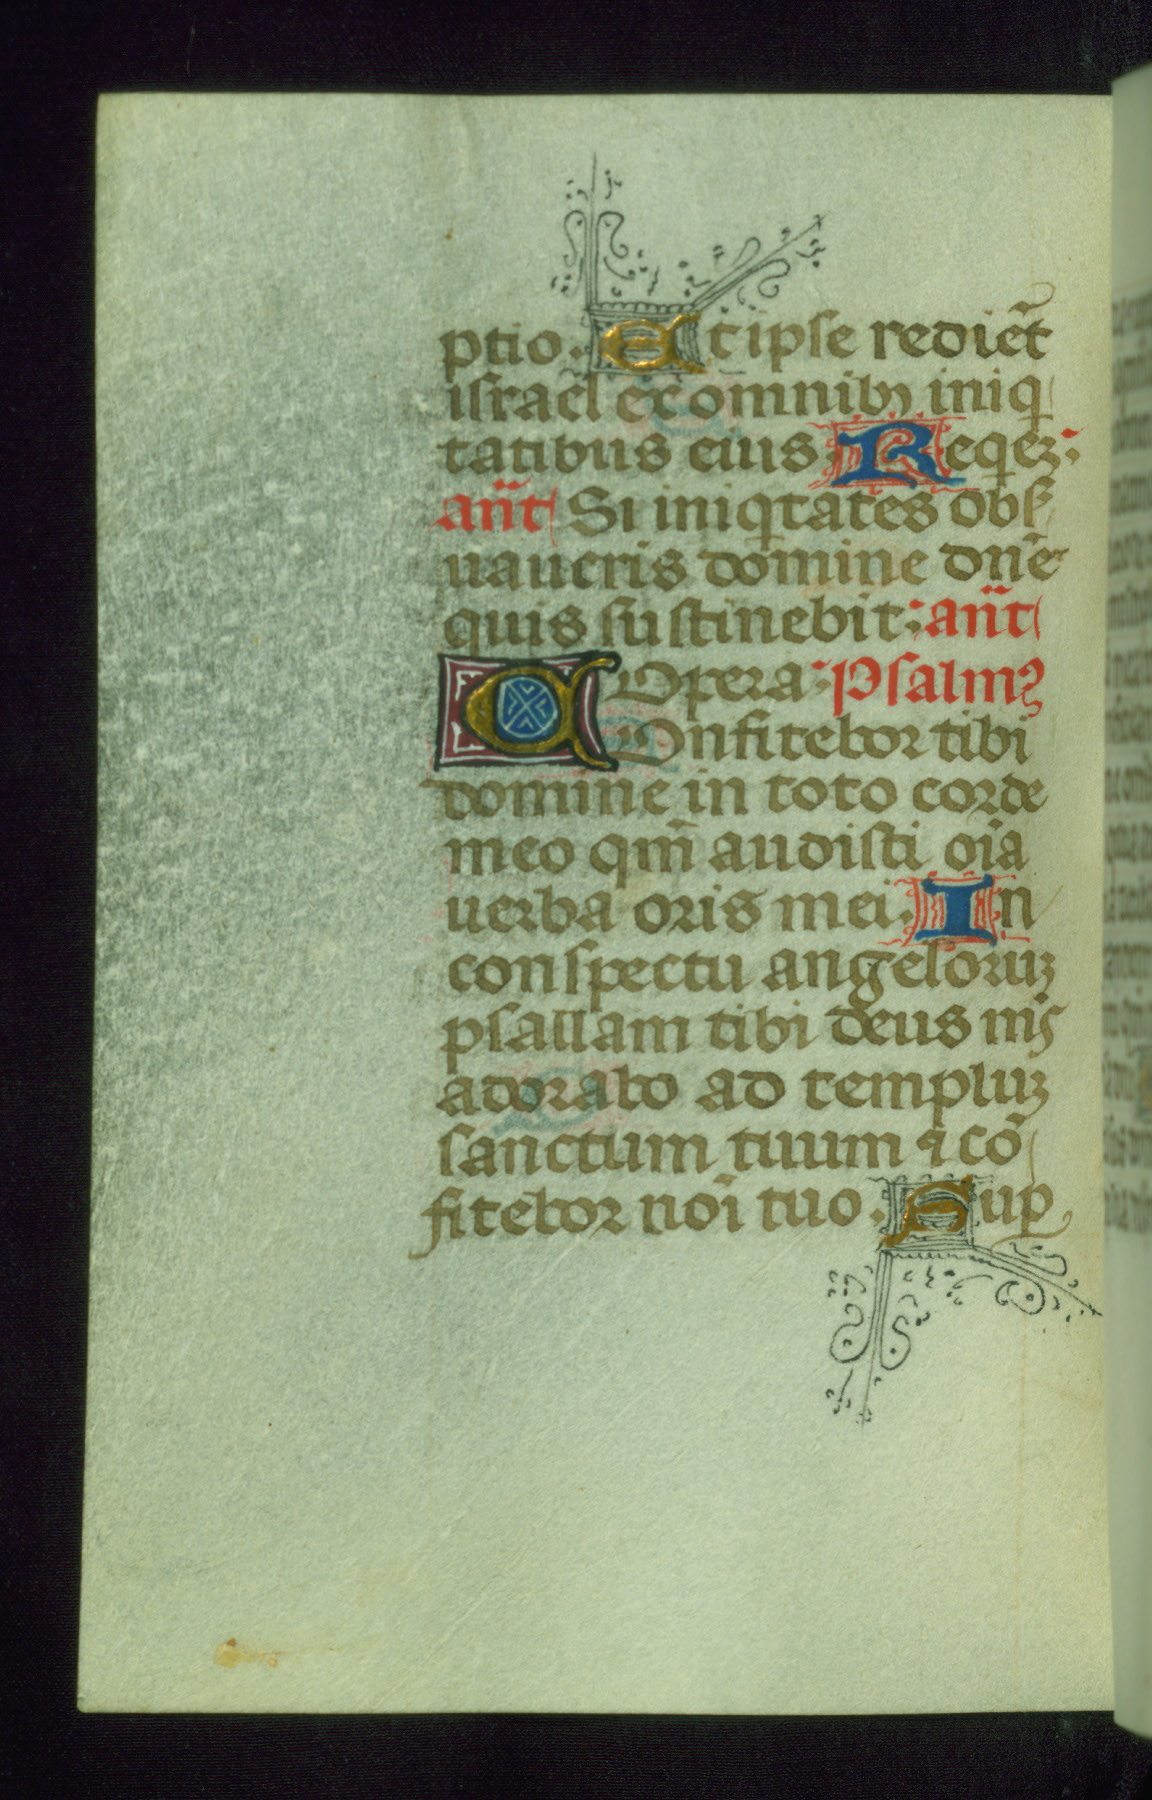 ptio. Et ipse rediet̃
israel ex omnibꝫ iniq
tatibus eius Reqeꝫ:
an̈t Si iniqtates obẜ
uaueris domine dn̄e
quis sustinebit: an̈t
Opera: Psalmꝰ
Confitebor tibi
domine in toto corde
meo qm̄ audisti oı̄a
uerba oris mei. In
conspectu angeloruꝫ
psallam tibi deus m̄s
adorabo ad templuꝫ
sanctum tuum ⁊ cō
fitebor noı̄ tuo. Suꝑ